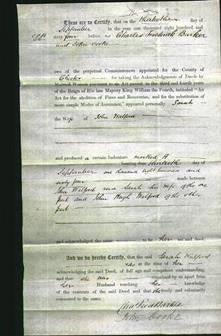 These are to Certify, that on the Thirtieth day of
September in the year one thousand eight hundred and
sixty four before us Charles Frederick Barker
and John Cooke
two of the perpetual Commissioners appointed for the County of
Chester for taking the Acknowledgments of Deeds by
Married Women pursuant to an Act passed in the third and fourth years
of the Reign of His late Majesty King William the Fourth, intituled "An
Act for the abolition of Fines and Recoveries, and for the substitution of
more simple Modes of Assurance," appeared personally Sarah
the Wife of John Welford
and produced a certain Indenture marked A
bearing date the Thirtieth day of
September one thousand eight hundred and
sixty four and made between
John Welford and Sarah his Wife of the one
part and John Welford of the other
part
and acknowledged the same to be her act and deed
And we do hereby Certify, that the said Sarah Welford
was at the time of her
acknowledging the said Deed, of full age and competent understanding,
and that she was examined by us apart from
her Husband touching her knowledge
of the contents of the said Deed and that she freely and voluntarily
consented to the same.
John Cooke